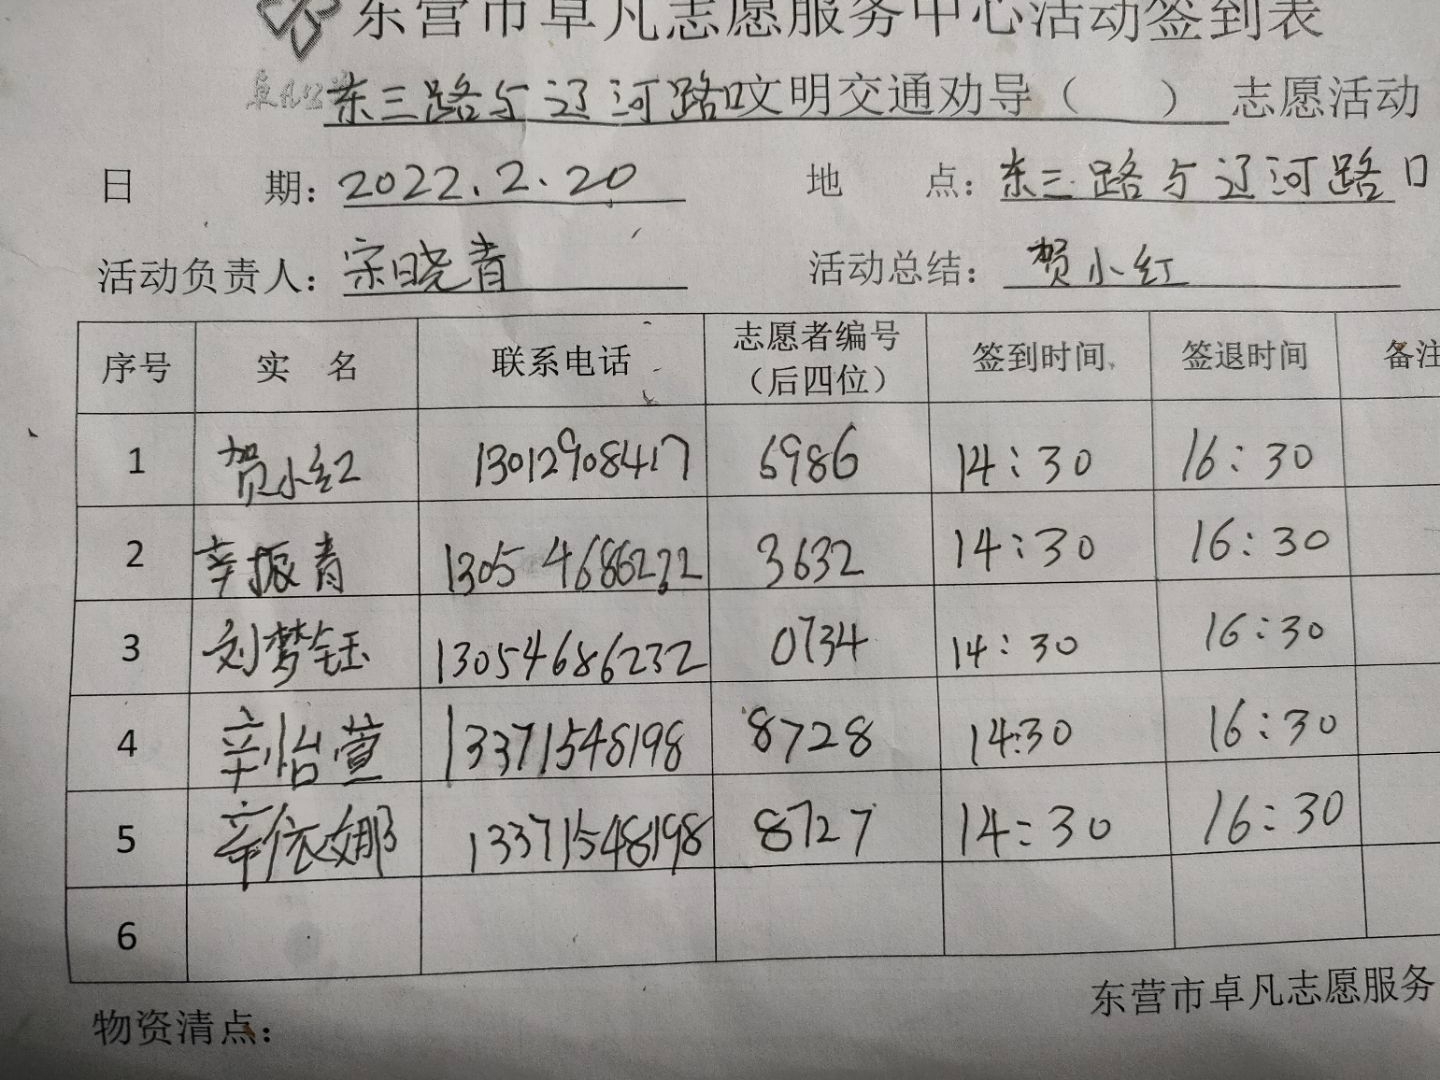 东营市卓凡志愿服务中心活动签到表
卓凡公益
东三路与辽河路口文明交通劝导（ ）志愿活动
日 期：2022.2.20 地 点：东三路与辽河路口
活动负责人：宋晓青 活动总结：贺小红
序号 实 名 联系电话 志愿者编号（后四位） 签到时间 签退时间 备注
1 贺小红 13012908417 6986 14:30 16:30
2 辛振青 13054686232 3632 14:30 16:30
3 刘梦钰 13054686232 0734 14:30 16:30
4 辛怡萱 13371548198 8728 14:30 16:30
5 辛依娜 13371548198 8727 14:30 16:30
6
东营市卓凡志愿服务
物资清点：